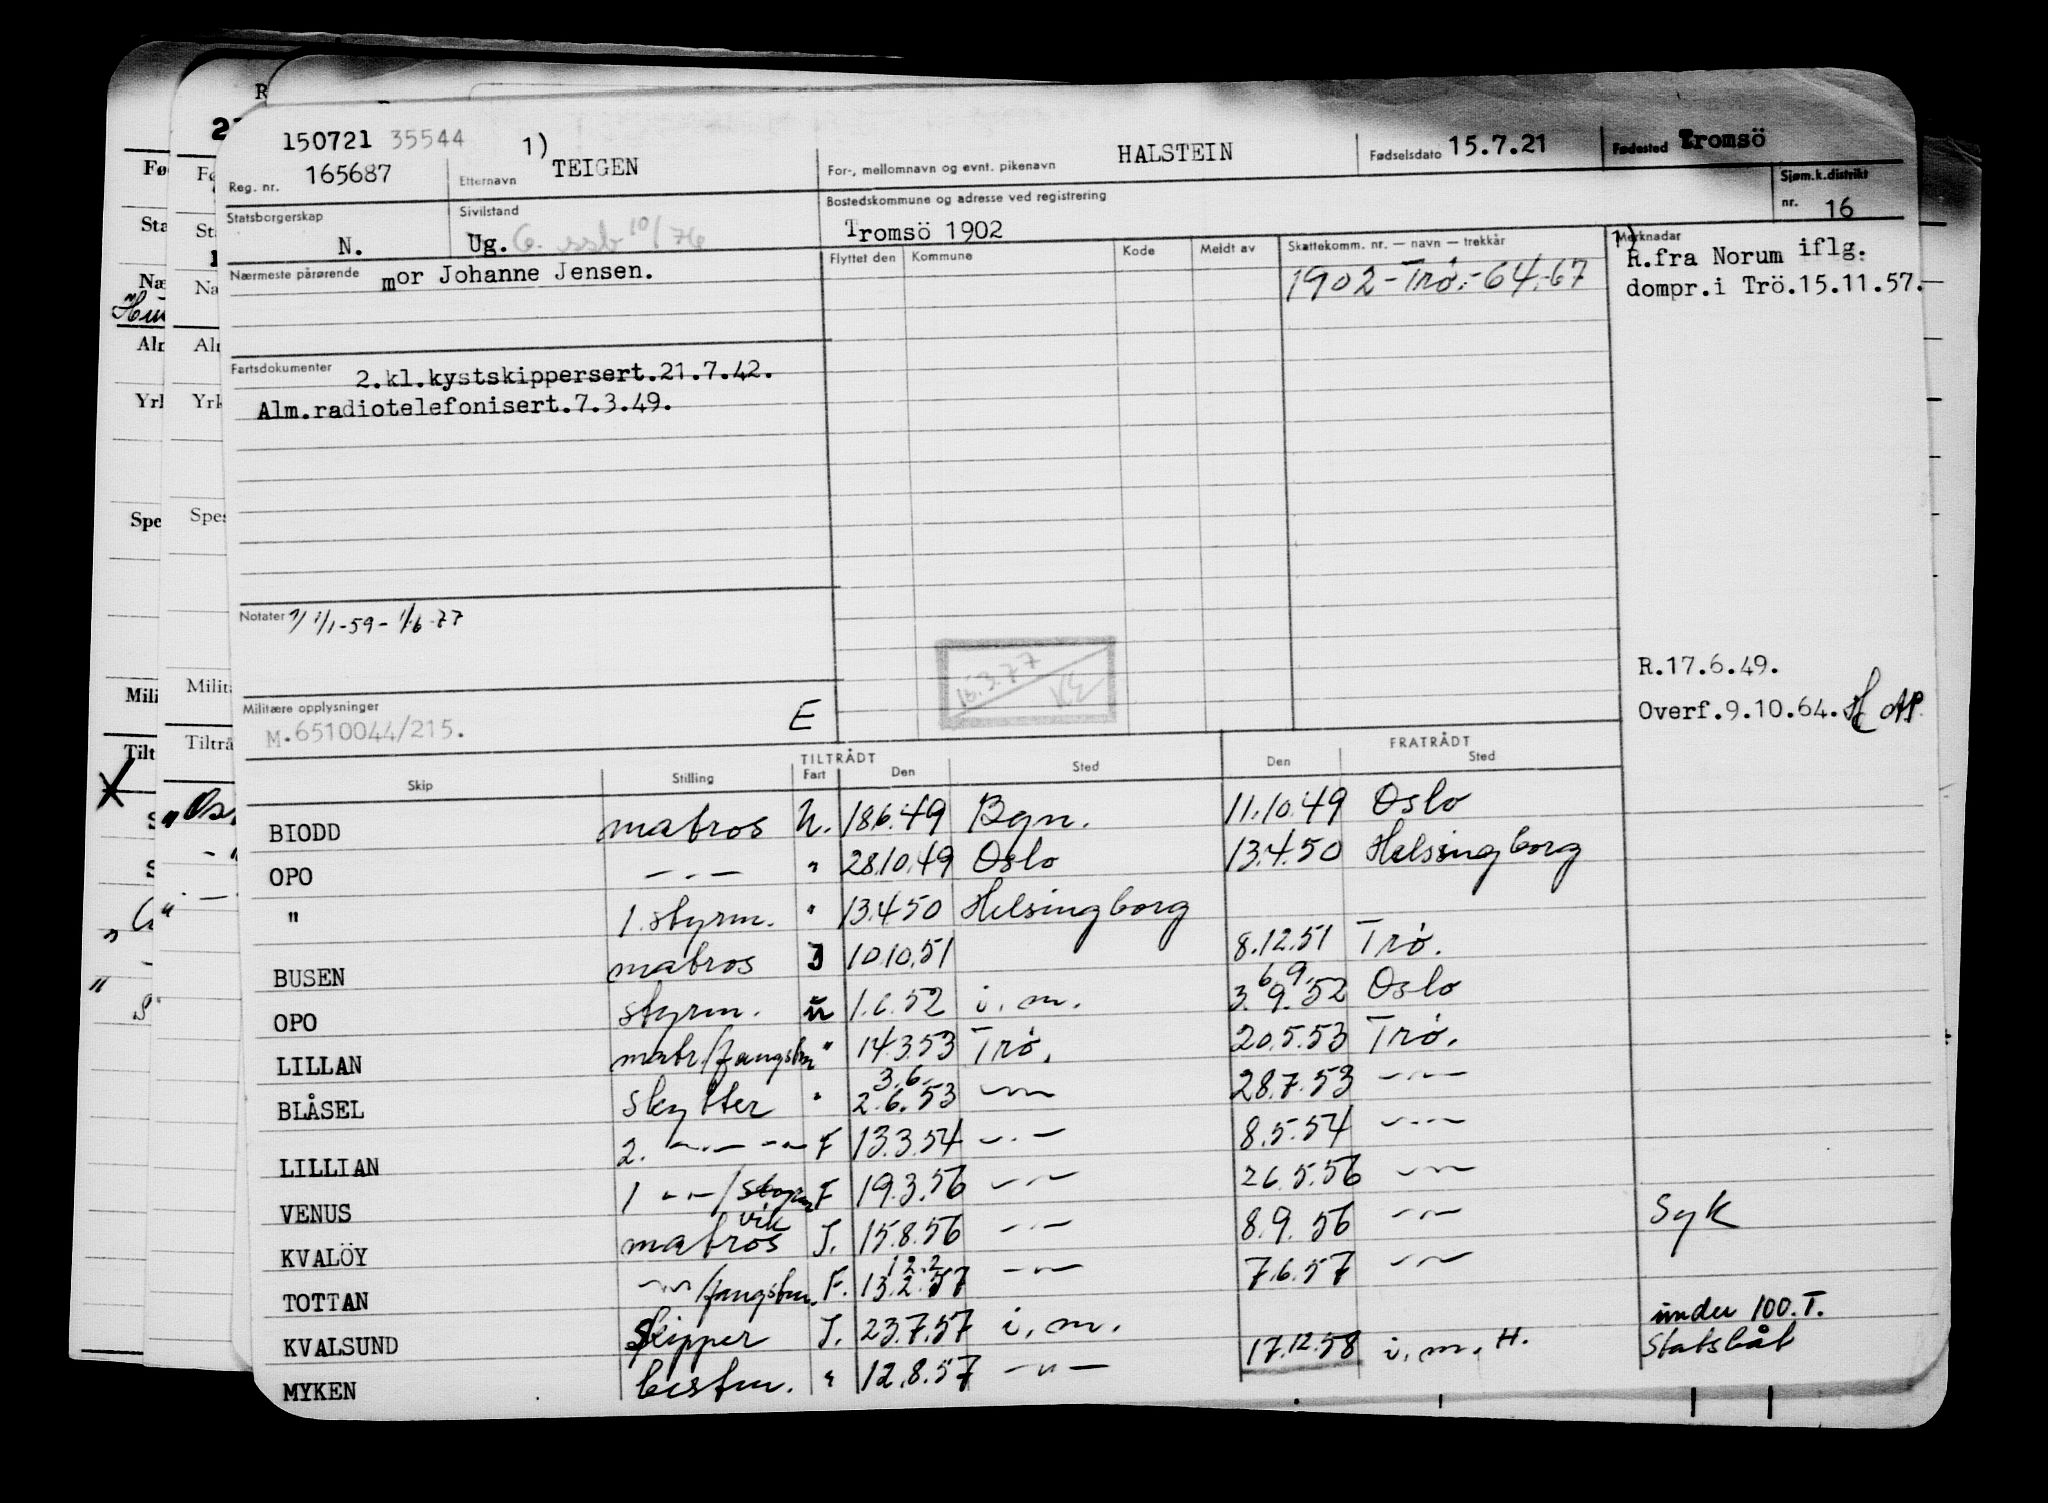 150721 35544
Reg. nr. 165687
1)
Etternavn TEIGEN
For-, mellomnavn og evnt. pikenavn HALSTEIN
Fødselsdato 15.7.21
Fødested Tromsö
Statsborgerskap N.
Sivilstand Ug. G. ssb 10/76
Bostedskommune og adresse ved registrering
Tromsö 1902
Sjøm.k.distrikt nr. 16
Nærmeste pårørende mor Johanne Jensen.
Flyttet den Kommune Kode Meldt av Skattekomm. nr. — navn — trekkår
1902-Trø.-64.-67
Merknadar
1)
R.fra Norum iflg.
dompr.i Trö.15.11.57.
Fartsdokumenter 2.kl.kystskippersert.21.7.42.
Alm.radiotelefonisert.7.3.49.
Notater 1/1-59-1/6-77
16.3.77
R.17.6.49.
Overf.9.10.64.
Militære opplysninger
M.6510044/215.
E
TILTRÅDT FRATRÅDT
Skip Stilling Fart Den Sted Den Sted
BIODD matros N. 18.6.49 Bgn. 11.10.49 Oslo
OPO —.— " 28.10.49 Oslo 13.4.50 Helsingborg
" 1. styrm. " 13.4.50 Helsingborg
BUSEN matros J 10.10.51 8.12.51 Trø.
6 9.
OPO styrm. 1.6.52 i.m. 3.9.52 Oslo
LILLAN matr/fangstm " 14.3.53 Trø. 20.5.53 Trø.
3.6.
BLÅSEL Skytter " 2.6.53 —"— 28.7.53 —"—
LILLIAN 2. —"— —"— F 13.3.54 —"— 8.5.54 —"—
VENUS 1 —"—/styrm F 19.3.56 —"— 26.5.56 —"—
vik
KVALÖY matros J. 15.8.56 —"— 8.9.56 —"— Syk
12.2
TOTTAN —"—/fangstm. F. 13.2.57 —"— 7.6.57 —"—
KVALSUND Skipper J. 23.7.57 i.m. under 100.T.
MYKEN bestm. " 12.8.57 —"— 17.12.58 i.m. H. Statsbåt